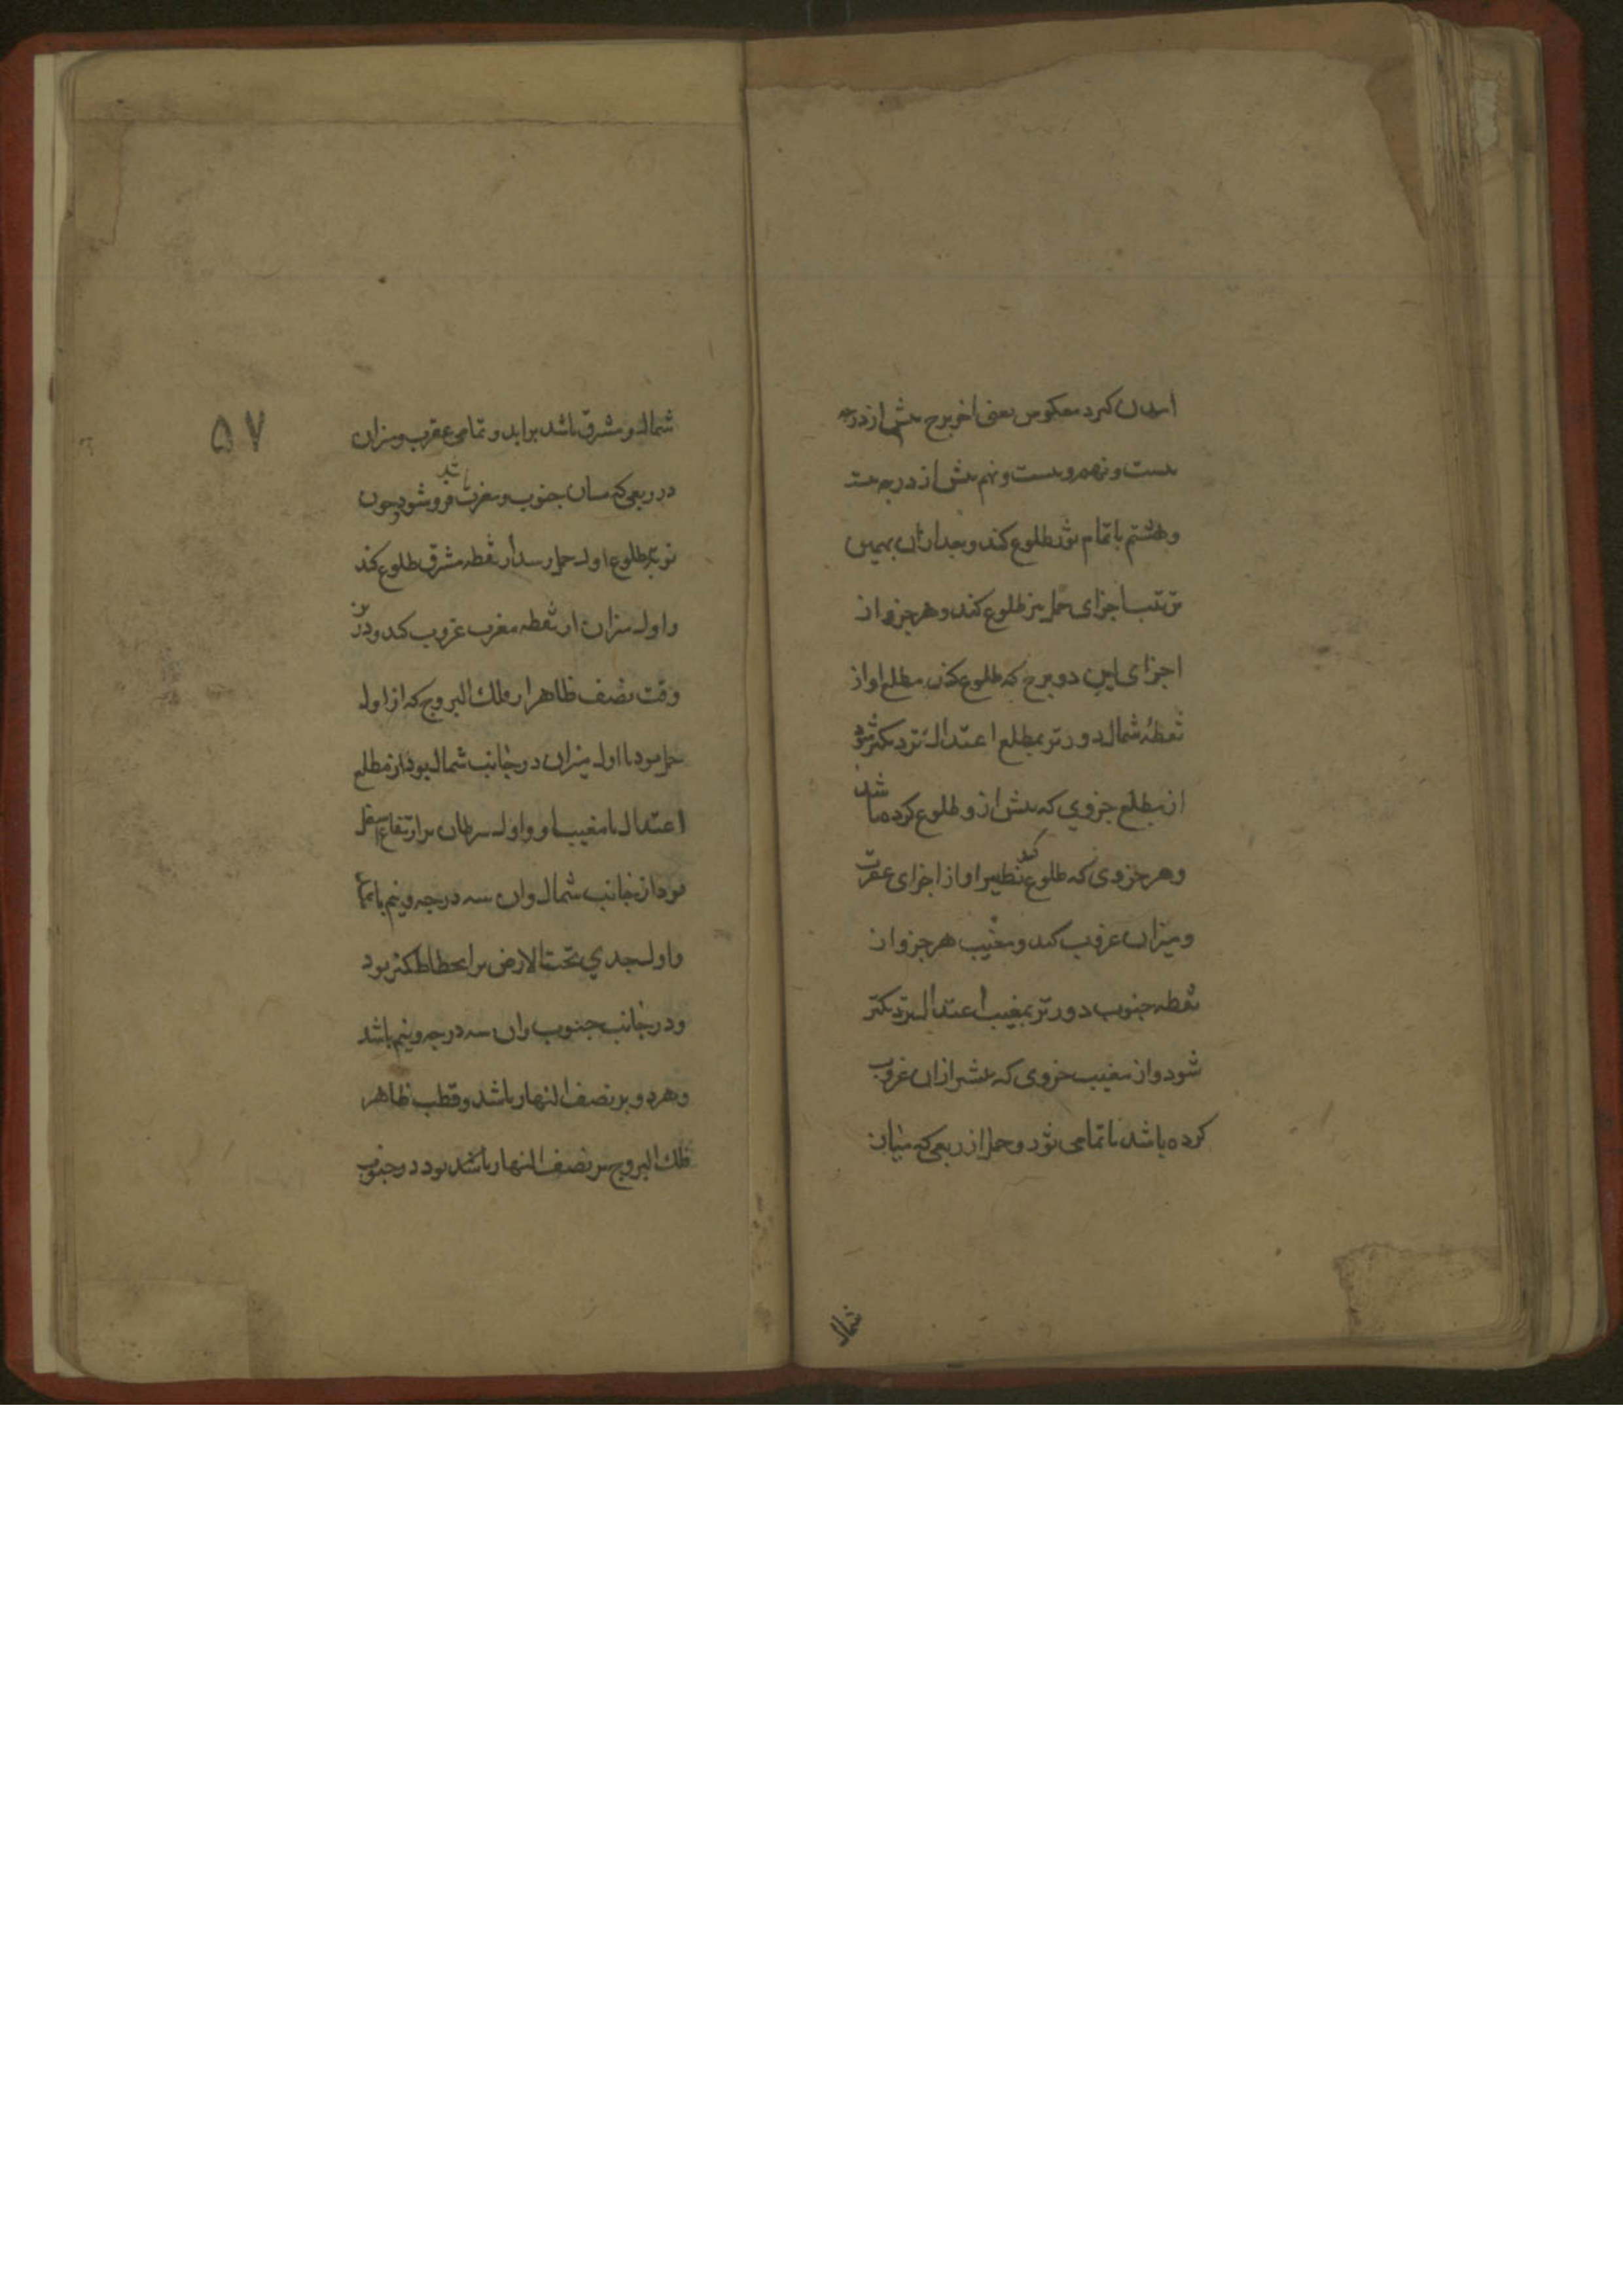 آمدن کیرد معکوس یعنی آخر برج پیش از درجه
بیست و نهم و بیست و نهم پیش از درجه بیست
و هشتم تا تمام ثور طلوع کند و بعد از آن بهمین
ترتیب اجزای حمل نیز طلوع کند و هر جزو از
اجزای این دو برج که طلوع کند مطلع او از
نقطهٔ شمال دورتر بمطلع اعتدال نزدیکتر شود
از مطلع جزوی که پیش از و طلوع کرده باشد
و هر جزوی که طلوع کند نظیر او از اجزای عقرب
و میزان غروب کند و مغیب هر جزو از
نقطه جنوب دورتر بمغیب اعتدال نزدیکتر
شود و از مغیب جزوی که پیشتر از آن غروب
کرده باشد تا تمامی ثور و حمل از ربعی که میان
شمال
۵۷
شمال و مشرق باشد برآید و تمامی عقرب و میزان
در ربعی که میان جنوب و مغرب باشد فرو شود و چون
نوبت طلوع اول حمل رسد از نقطه مشرق طلوع کند
و اول میزان از نقطه مغرب غروب کند و درین
وقت نصف ظاهر از فلک البروج که از اول
حمل بود تا اول میزان در جانب شمال بود از مطلع
اعتدال تا مغیب او و اول سرطان بر ارتفاع اسفل
بود از جانب شمال و آن سه درجه و نیم باشد
و اول جدی تحت الارض بر انحطاط کمتر بود
و در جانب جنوب و آن سه درجه و نیم باشد
و هر دو بر نصف النهار باشد و قطب ظاهر
فلک البروج بر نصف النهار باشد بود در جنوب